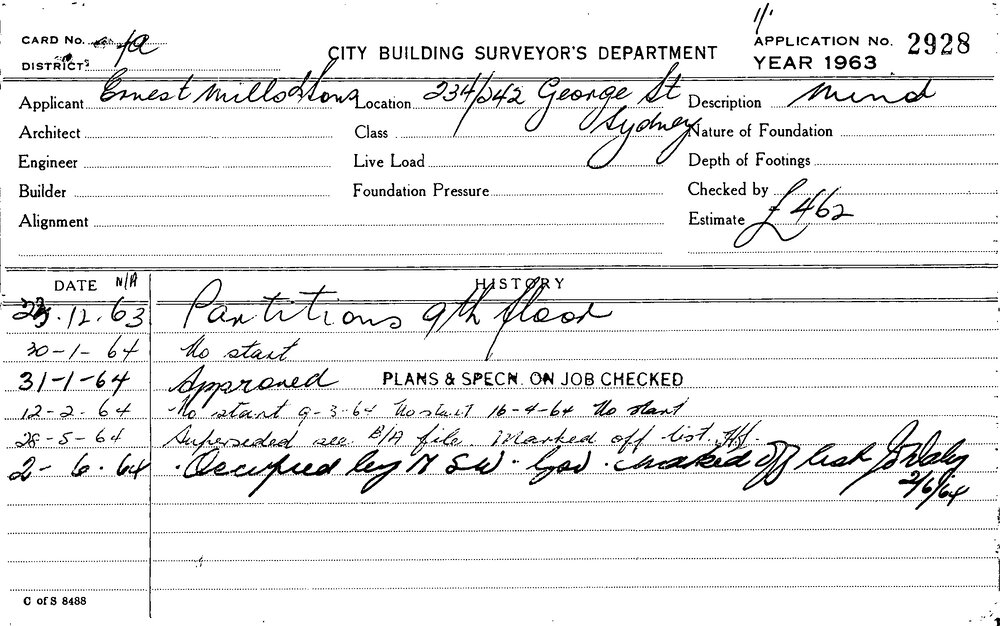 CARD No. 4a
DISTRICTS
CITY BUILDING SURVEYOR'S DEPARTMENT
APPLICATION No. 2928
YEAR 1963
Applicant Ernest Mills & Sons Location 234/242 George St Sydney Description Mind
Architect Class Nature of Foundation
Engineer Live Load Depth of Footings
Builder Foundation Pressure Checked by
Alignment Estimate £462
DATE N/A HISTORY
23.12.63 Partitions 9th floor
30-1-64 No start
31-1-64 Approved PLANS & SPECN. ON JOB CHECKED
12-2-64 No start 9-3-64 No start 16-4-64 No start
28-5-64 Superseded see B/A file. Marked off list.
2-6-64 Occupied by N S W. Gov. marked off list
2/6/64
C of S 8488